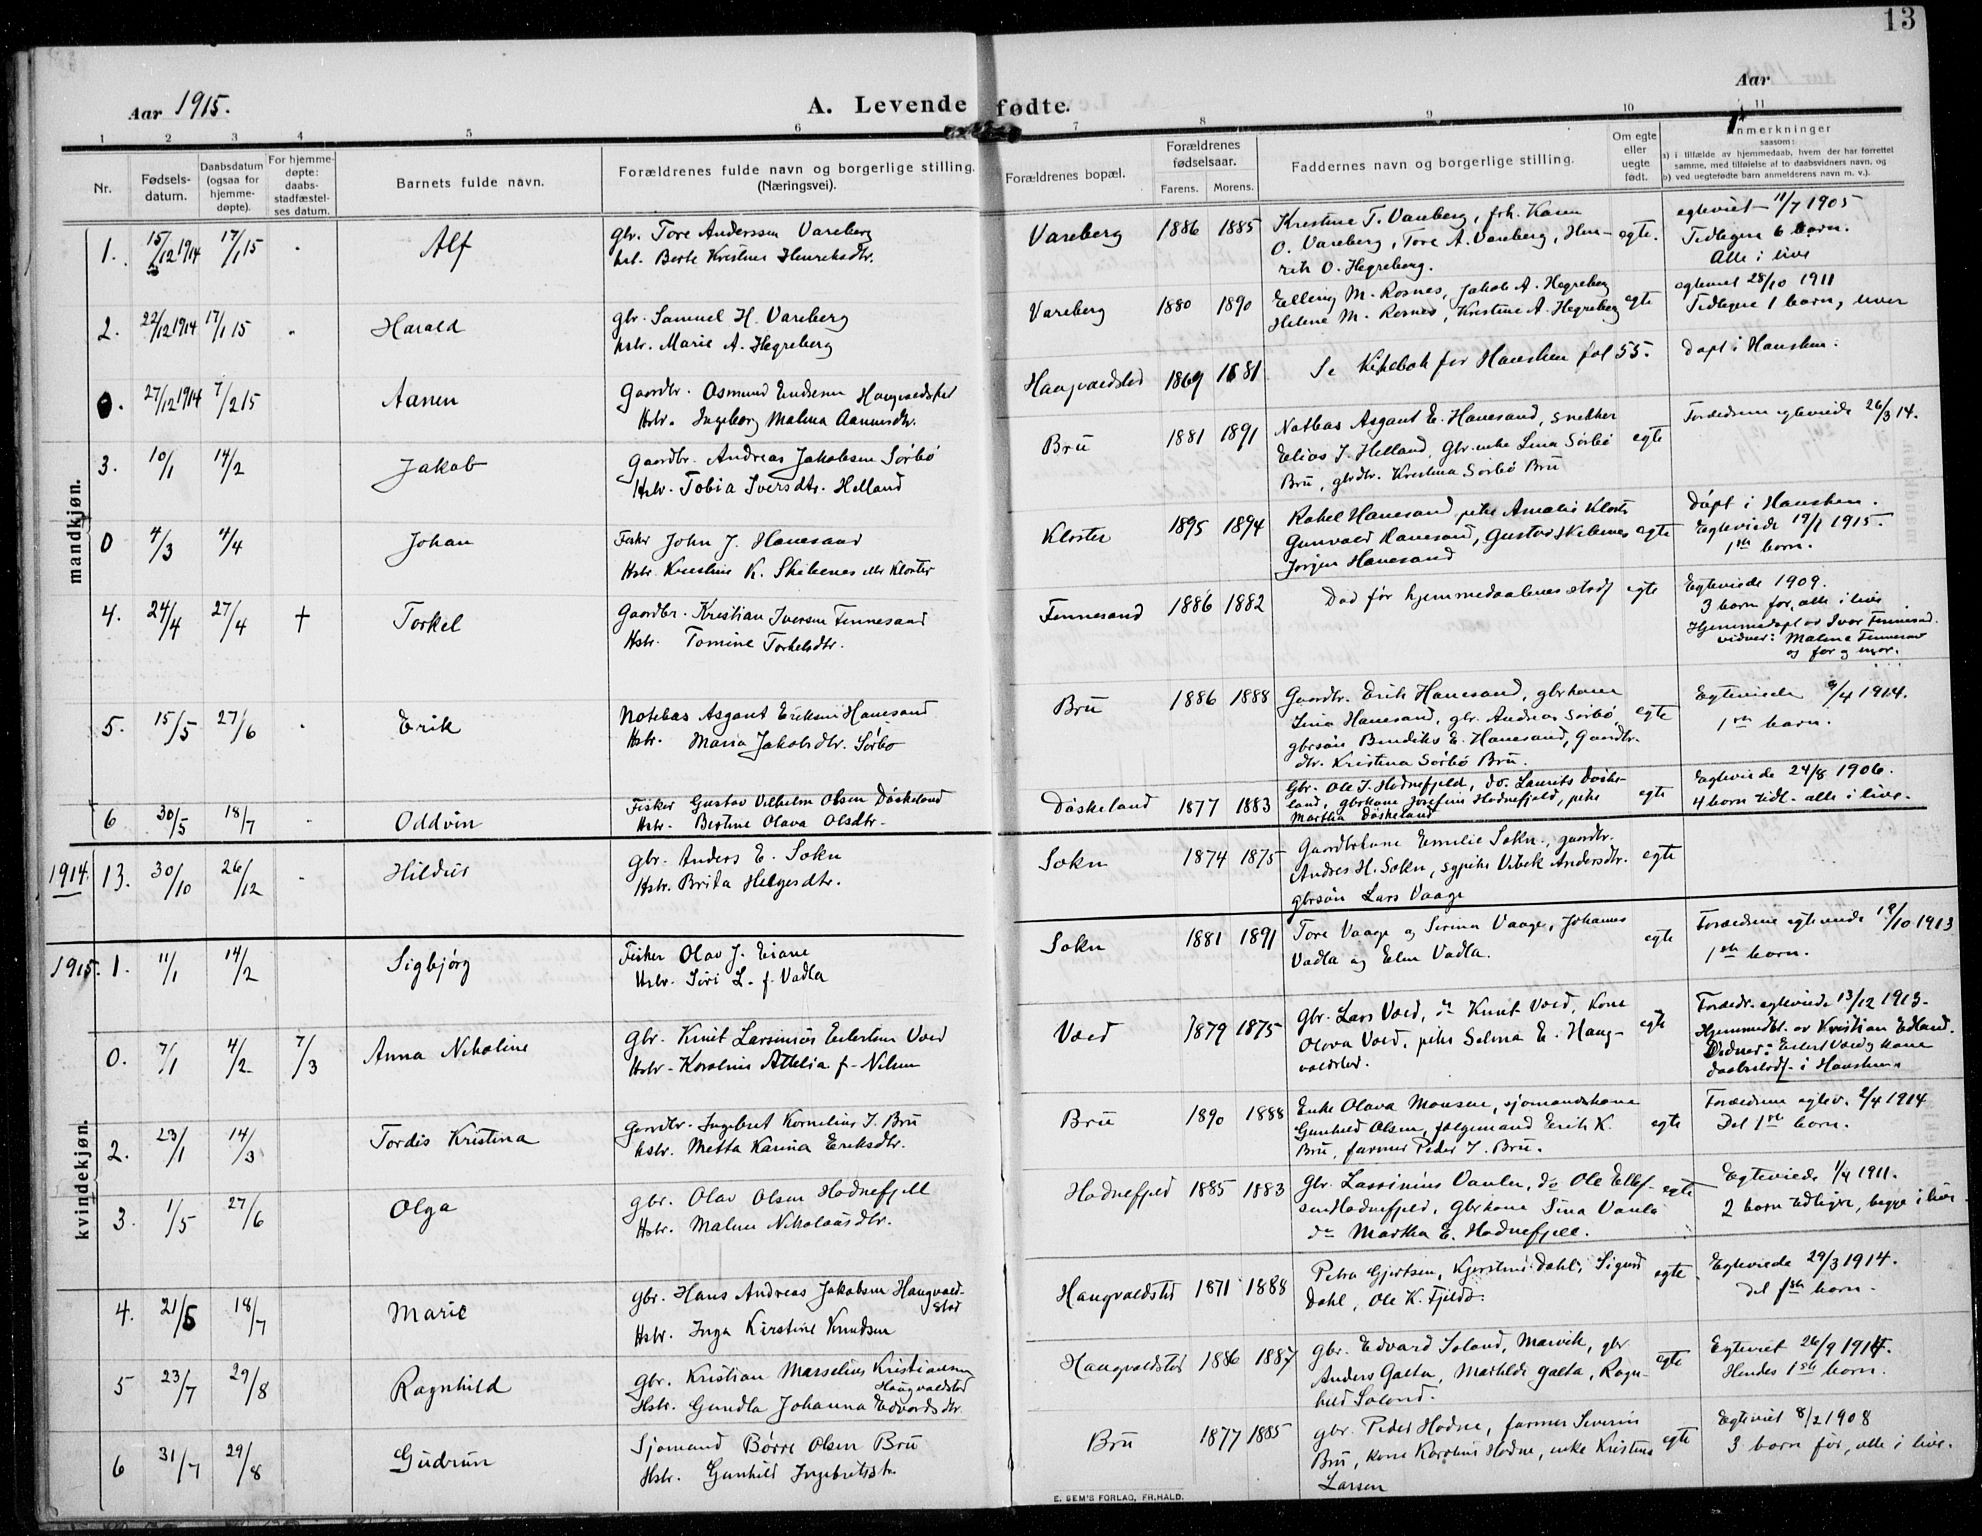 13
Aar 1915.
A. Levende fødte.
Aar
1 2 3 4 5 6 7 8 9 10 11
Nr.
Fødsels-
datum.
Daabsdatum
(ogsaa for
hjemme-
døpte).
For hjemme-
døpte:
daabs-
stadfæstel-
ses datum.
Barnets fulde navn.
Forældrenes fulde navn og borgerlige stilling.
(Næringsvei).
Forældrenes bopæl.
Forældrenes
fødselsaar.
Farens. Morens.
Faddernes navn og borgerlige stilling.
Om egte
eller
uegte
født.
Anmerkninger
saasom:
a) i tilfælde av hjemmedaab, hvem der har forrettet
samme, med tilføielse af to daabsvidners navn, og
b) ved uegtefødte barn anmelderens navn m. v.).
mandkjøn.
1. 15/12 1914 17/1 15 Alf
gbr. Tore Anderssen Vareberg
hst. Berte Kristine Henriksdtr.
Vareberg 1886 1885
Kristine T. Vareberg, frk. Karen
O. Vareberg, Tore A. Vareberg, Hen-
rik O. Hegreberg.
egte.
egteviet 11/7 1905
Tidligere 6 barn.
Alle i live
2. 22/12 1914 17/1 15 Harald
gbr. Samuel H. Vareberg
hstr. Marie A. Hegreberg
Vareberg 1880 1890
Elling M. Rosnes, Jakob A. Hegreberg
Helene M. Rosnes, Kristine A. Hegreberg
egte
egteviet 28/10 1911
Tidligere 1 barn, lever
0. 27/12 1914 7/2 15 Aanen
Gaardbr. Osmund Endresen Haugvaldstad
Hstr. Ingeborg Malena Aanensdtr.
Haugvaldstad 1869 1881
Se Kirkebok for Hausken fol 55.
Døpt i Hausken.
3. 10/1 14/2 Jakob
Gaardbr. Andreas Jakobsen Sørbø
Hstr. Tobia Iversdtr. Helland
Bru 1881 1891
Notbas Asgaut E. Hanesand, snekker
Elias J. Helland, Gbr. enke Lina Sørbø
Bru, gbrdtr. Kristina Sørbø Bru
egte
Forældrene egteviede 26/3 14.
0 4/3 4/4 Johan
Fisker John J. Hanesand
Hstr. Kristine K. Skibenes eller Kloster
Kloster 1895 1894
Rakel Hanesand, pike Amalie Kloster
Gunvald Hanesand, Gustav Skibenes
Jørgen Hanesand
egte
Døpt i Hausken.
Egteviede 19/1 1915.
1ste barn.
4. 24/4 27/4 + Torkel
Gaardbr. Kristian Iversen Fennesand
Hstr. Tomine Torkelsdtr.
Fennesand 1886 1882
Død før hjemmedaabens stadf
egte
Egteviede 1909.
3 barn før, alle i live.
Hjemmedøpt av Ivar Fennesand.
vidner: Malene Fennesand
og far og mor.
5. 15/5 27/6 Erik
Notebas Asgaut Eriksen Hanesand
Hstr. Maria Jakobsdtr. Sørbø
Bru 1886 1888
Gaardbr. Erik Hanesand, gbrkone
Lina Hanesand, gbr. Andreas Sørbø
gbrsøn Bendiks E. Hanesand, Gaardbr.
dtr. Kristina Sørbø Bru.
egte
Egteviede 9/4 1914.
1ste barn.
6 30/5 18/7 Oddvin
Fisker Gustav Vilhelm Olsen Døskeland
Hstr. Bertine Olava Olsdtr.
Døskeland 1877 1883
Gbr. Ole T. Hodnefjeld, do. Laurits Døske-
land, gbrkone Josefine Hodnefjeld, pike
Martha Døskeland
egte
Egteviede 24/8 1906.
4 barn tidl. alle i live.
kvindekjøn.
1914. 13. 30/10 26/12 Hildur
gbr. Anders E. Sokn
Hstr. Brita Helgesdtr.
Sokn 1874 1875
Gaardbrkone Emilie Sokn, gaardbr.
Andres H. Sokn, sypike Vibek Andersdtr.
gbrsøn Lars Vaage
egte
1915. 1. 11/1 14/2 Sigbjørg
Fisker Olav J. Eiane
Hstr. Siri L. f. Vadla
Sokn 1881 1891
Tore Vaage og Serina Vaage, Johannes
Vadla og Elen Vadla.
egte
Forældrene egteviede 19/10 1913
1ste barn.
0. 7/1 4/2 7/3 Anna Nikoline
Gbr. Knut Larsinius Eilertsen Voed
Hstr. Karoline Attelia f. Nilsen
Voed 1879 1875
Gbr. Lars Voed, do Knut Voed, Kone
Olava Voed, pike Selma E. Haug-
valdstad.
egte
Forældr. egteviede 13/12 1913.
Hjemmedbt. av Kristian Edland.
Vidner: Eilert Voed og kone
daabstadf. i Hausken
2. 23/1 14/3 Tordis Kristina
Gaardbr. Ingebret Kornelius I. Bru
hstr. Metta Karina Eriksdtr.
Bru 1890 1888
Enke Olava Monsen, sjømandskone
Gunhild Olsen, følgemand Erik K.
Bru, farmer Peder I. Bru.
egte
Forældrene egtev. 2/4 1914
Det 1ste barn.
3. 1/5 27/6 Olga
gbr. Olav Olsen Hodnefjell
Hstr. Malene Nikolaisdtr.
Hodnefjeld 1885 1883
Gbr. Lassinius Vaula, do Ole Ellef-
sen Hodnefjeld, Gbrkone Tina Vaula
do Martha E. Hodnefjell.
egte
Egteviede 1/4 1911.
2 barn tidligre, begge i live.
4. 21/5 18/7 Marie
gbr. Hans Andreas Jakobsen Haugvald-
stad
Hstr. Inga Kirstine Knudsen
Haugvaldstad 1871 1888
Petra Gjertsen, Kjerstine Dahl, Sigurd
Dahl, Ole K. Fjeld.
egte
Egteviede 29/3 1914.
Det 1ste barn.
5 23/7 29/8 Ragnhild
Gbr. Kristian Masselius Kristiansen
Haugvaldstad
Hstr. Gundla Johanna Edvardsdtr.
Haugvaldstad 1886 1887
gbr. Edvard Soland, Marvik, gbr
Anders Galta, Mathilde Galta, Ragn-
hild Soland.
egte
Egteviet 26/9 1914.
Hendes 1ste barn.
6 31/7 29/8 Gudrun
Sjømand Børre Olsen Bru
Hstr. Gunhild Ingebretsdtr.
Bru 1877 1885
gbr. Peder Hodne, farmer Severin
Bru, kone Karoline Hodne, enke Kristine
Larsen
egte
Egteviet 8/2 1908
3 barn før, alle i live.
E. SEM'S FORLAG, FR.HALD.